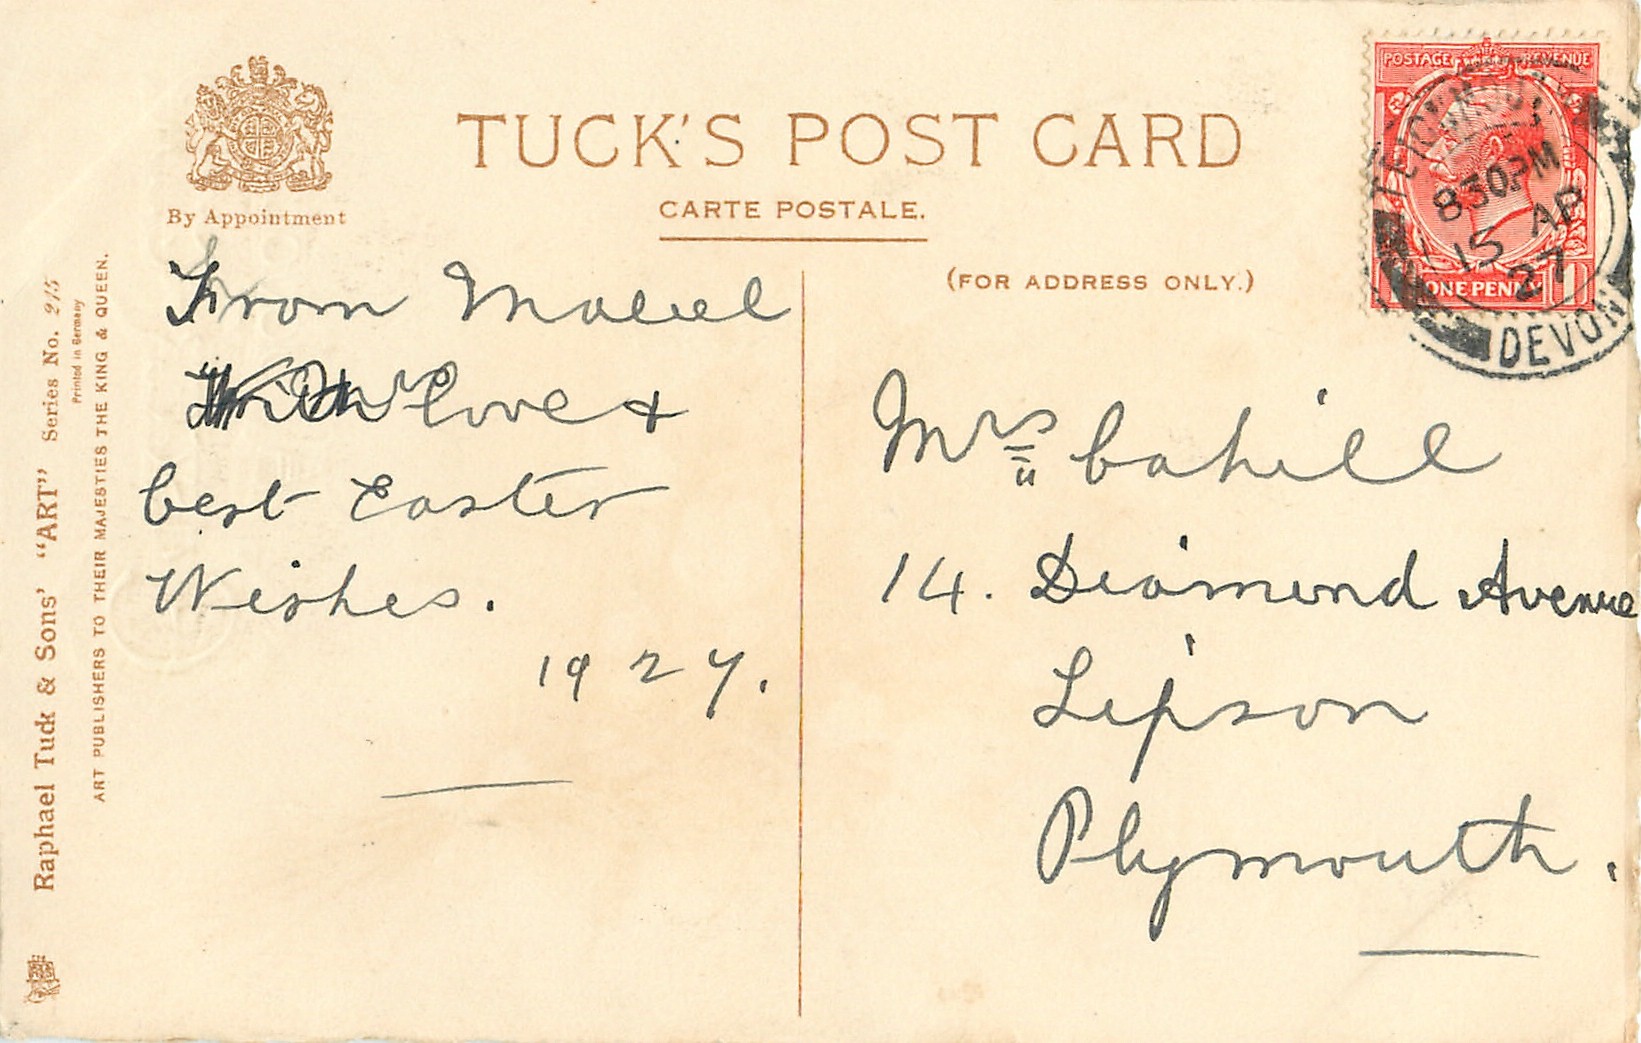 TUCK'S POST CARD
CARTE POSTALE.
By Appointment
(FOR ADDRESS ONLY.)
POSTAGE REVENUE
ONE PENNY
830PM
15 AP
27
DEVON
From Mabel
With love &
best Easter
Wishes.
1927.
Mrs Cahill
14. Diamond Avenue
Lipson
Plymouth.
Raphael Tuck & Sons' "ART" Series No. 215
Printed in Germany
ART PUBLISHERS TO THEIR MAJESTIES THE KING & QUEEN.